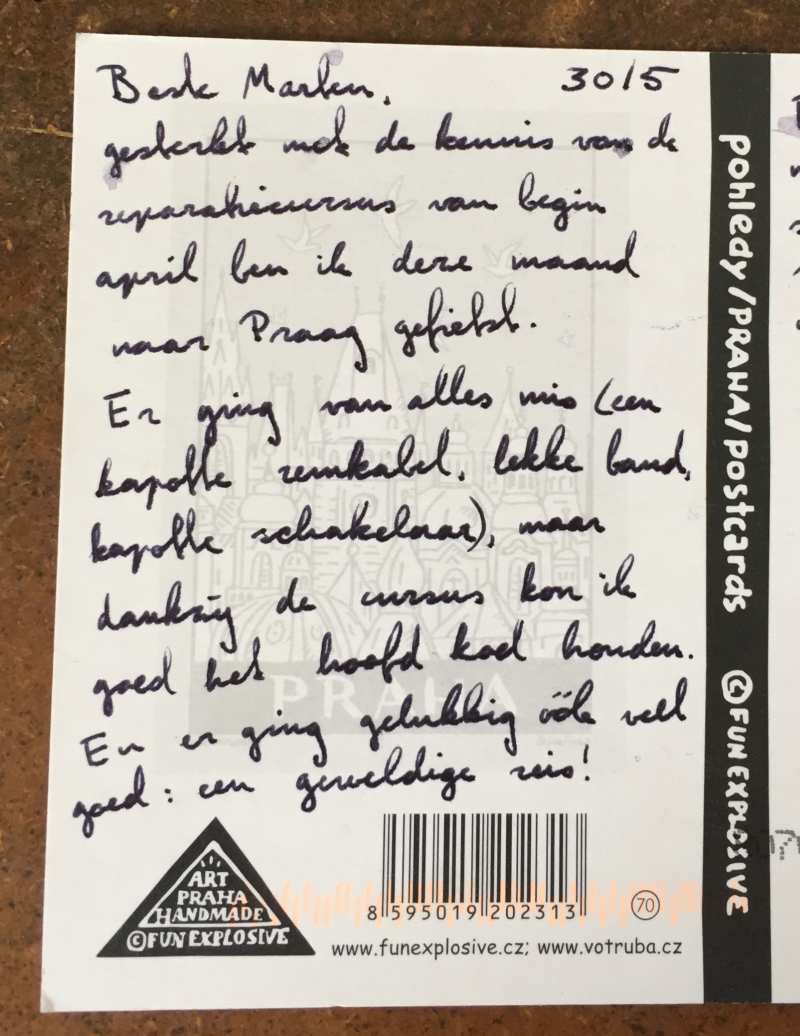 Beste Marten,
30/5
gesterkt met de kennis van de
reparatiecursus van begin
april ben ik deze maand
naar Praag gefietst.
Er ging van alles mis (een
kapotte remkabel, lekke band,
kapotte schakelaar), maar
dankzij de cursus kon ik
goed het hoofd koel houden.
En er ging gelukkig óók veel
goed: een geweldige reis!
PRAHA
ART
PRAHA
HANDMADE
©FUN EXPLOSIVE
8 595019 202313
70
www.funexplosive.cz; www.votruba.cz
pohledy/PRAHA/postcards ©FUN EXPLOSIVE